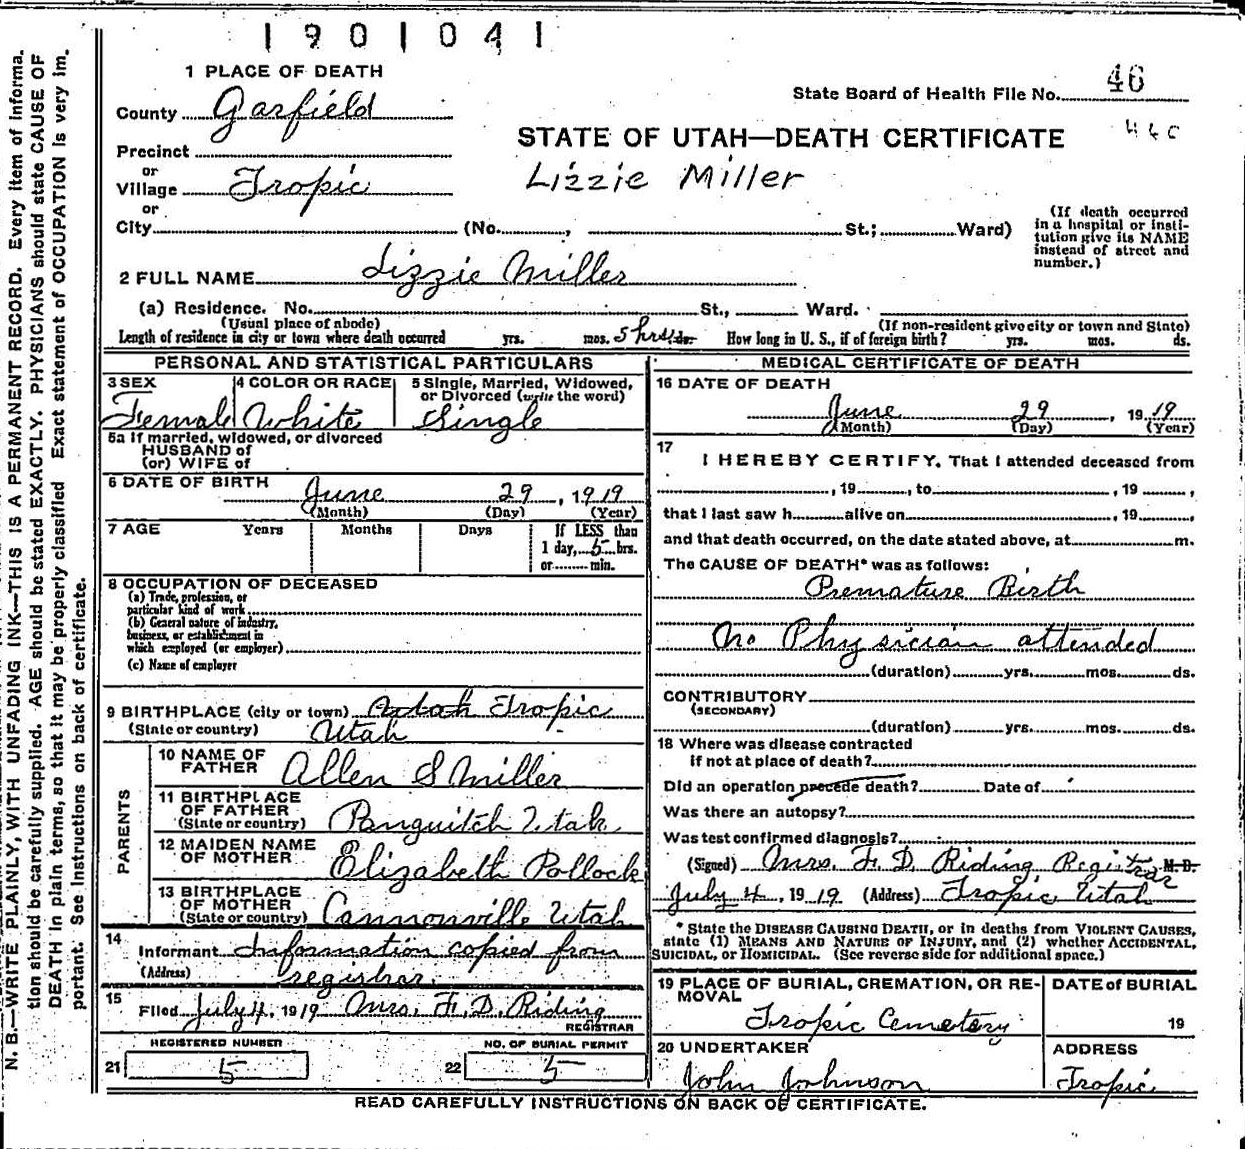 1901041
1 PLACE OF DEATH
State Board of Health File No. 46
County Garfield
STATE OF UTAH—DEATH CERTIFICATE
Precinct
Lizzie Miller
or
Village Tropic
or
City (No. , St.; Ward)
(If death occurred
in a hospital or insti-
tution give its NAME
instead of street and
number.)
2 FULL NAME Lizzie Miller
(a) Residence. No. St., Ward.
(Usual place of abode) (If non-resident give city or town and State)
Length of residence in city or town where death occurred yrs. mos. 5 hrs. ds. How long in U. S., if of foreign birth? yrs. mos. ds.
PERSONAL AND STATISTICAL PARTICULARS
3 SEX
Female
4 COLOR OR RACE
White
5 Single, Married, Widowed,
or Divorced (write the word)
Single
5a If married, widowed, or divorced
HUSBAND of
(or) WIFE of
6 DATE OF BIRTH
June 29, 1919
(Month) (Day) (Year)
7 AGE Years Months Days If LESS than
1 day, 5 hrs.
or min.
8 OCCUPATION OF DECEASED
(a) Trade, profession, or
particular kind of work
(b) General nature of industry,
business, or establishment in
which employed (or employer)
(c) Name of employer
9 BIRTHPLACE (city or town) Utah Tropic
(State or country) Utah
PARENTS
10 NAME OF
FATHER Allen S Miller
11 BIRTHPLACE
OF FATHER
(State or country) Panguitch Utah
12 MAIDEN NAME
OF MOTHER Elizabeth Pollock
13 BIRTHPLACE
OF MOTHER
(State or country) Cannonville Utah
14
Informant Information copied from
(Address) registrar.
15
Filed July 4, 1919 Mrs. F. D. Riding
REGISTRAR
REGISTERED NUMBER
21 5
NO. OF BURIAL PERMIT
22 5
MEDICAL CERTIFICATE OF DEATH
16 DATE OF DEATH
June 29, 1919
(Month) (Day) (Year)
17
I HEREBY CERTIFY, That I attended deceased from
, 19 , to , 19 ,
that I last saw h alive on , 19 ,
and that death occurred, on the date stated above, at m.
The CAUSE OF DEATH* was as follows:
Premature Birth
No Physician attended
(duration) yrs. mos. ds.
CONTRIBUTORY
(SECONDARY)
(duration) yrs. mos. ds.
18 Where was disease contracted
if not at place of death?
Did an operation precede death? Date of
Was there an autopsy?
Was test confirmed diagnosis?
(Signed) Mrs. F. D. Riding, Registrar M. D.
July 4, 1919 (Address) Tropic Utah
* State the DISEASE CAUSING DEATH, or in deaths from VIOLENT CAUSES,
state (1) MEANS AND NATURE OF INJURY, and (2) whether ACCIDENTAL,
SUICIDAL, or HOMICIDAL. (See reverse side for additional space.)
19 PLACE OF BURIAL, CREMATION, OR RE-
MOVAL
Tropic Cemetery
DATE of BURIAL
19
20 UNDERTAKER
John Johnson
ADDRESS
Tropic
READ CAREFULLY INSTRUCTIONS ON BACK OF CERTIFICATE.
N. B.—WRITE PLAINLY, WITH UNFADING INK—THIS IS A PERMANENT RECORD. Every item of informa-
tion should be carefully supplied. AGE should be stated EXACTLY. PHYSICIANS should state CAUSE OF
DEATH in plain terms, so that it may be properly classified. Exact statement of OCCUPATION is very im-
portant. See instructions on back of certificate.